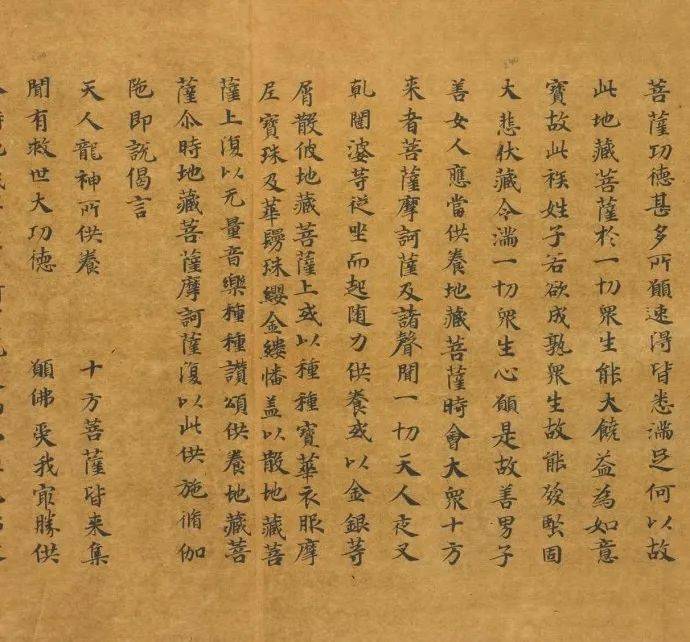 菩薩功德甚多所願速得皆悉滿足何以故
此地藏菩薩於一切眾生能大饒益為如意
寶故此族姓子若欲成熟眾生故能發堅固
大悲伏藏令滿一切眾生心願是故善男子
善女人應當供養地藏菩薩時會大眾十方
来者菩薩摩訶薩及諸聲聞一切天人夜叉
乹闥婆等從坐而起随力供養或以金銀等
屑散彼地藏菩薩上或以種種寶華衣服摩
尼寶珠及華鬘珠纓金縷幡盖以散地藏菩
薩上復以无量音樂種種讚頌供養地藏菩
薩尒時地藏菩薩摩訶薩復以此供施脩伽
陁即說偈言
天人龍神所供養　十方菩薩皆来集
聞有救世大功德　願佛受我冣勝供